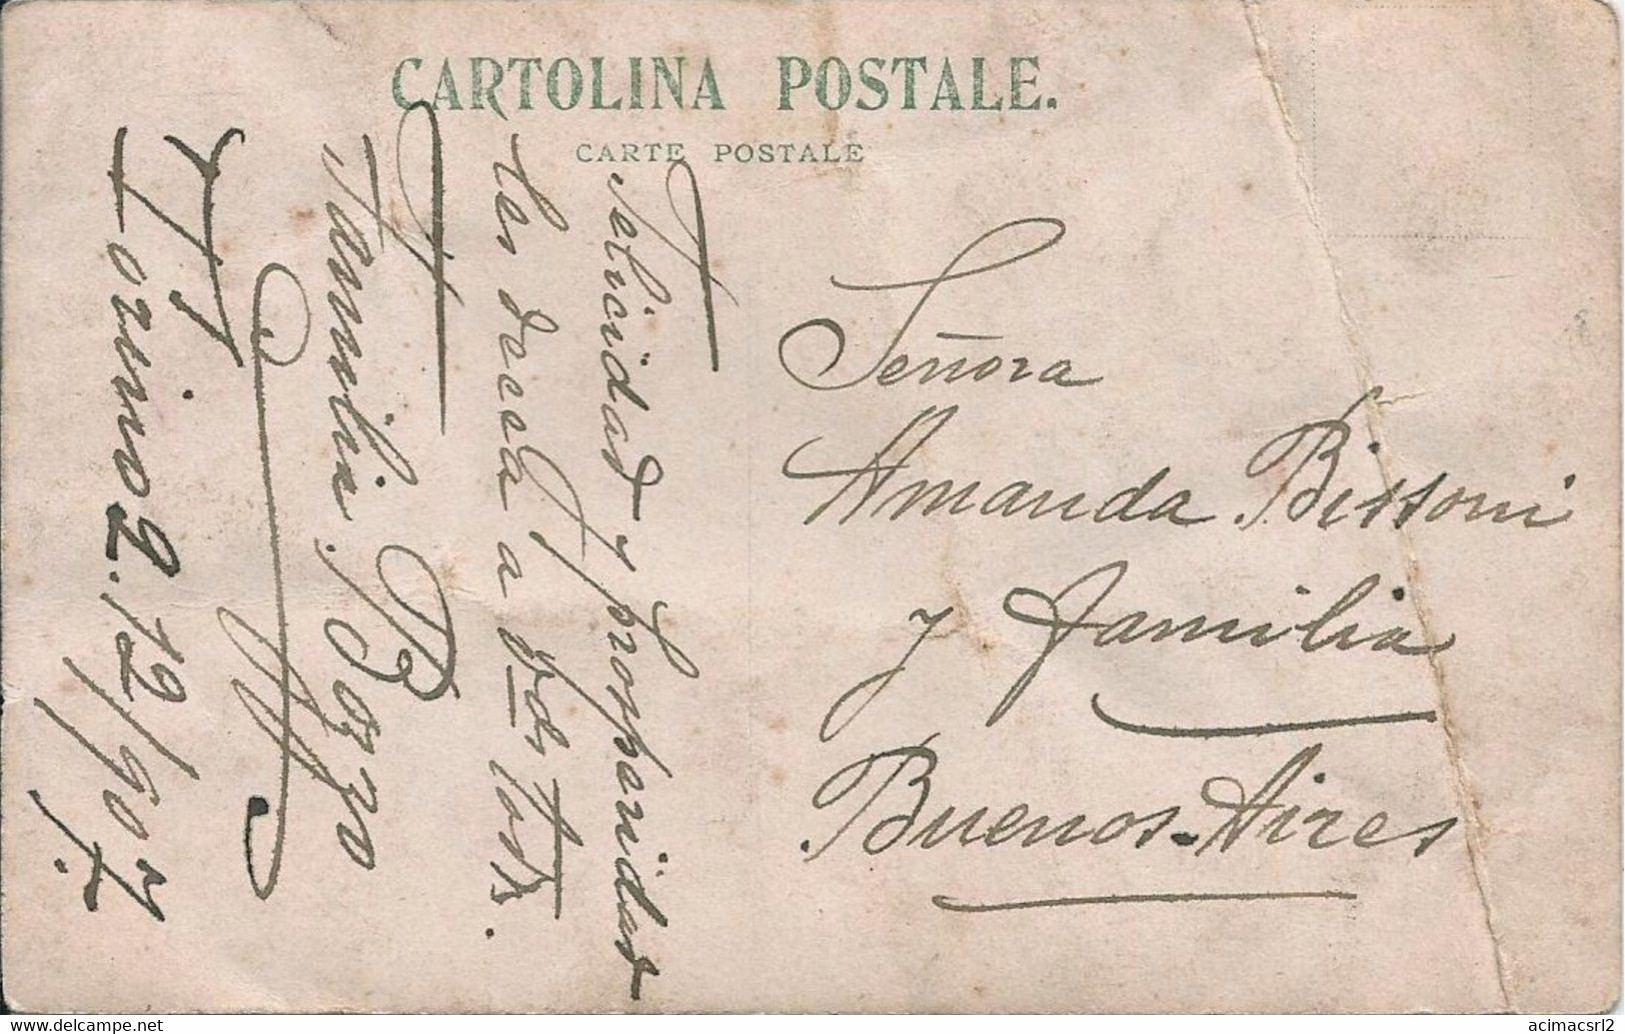 CARTOLINA POSTALE.
CARTE POSTALE
Felicidad y prosperidad
les desea a Vds todos.
Familia Bozzo
Torino 2.12/907.
Señora
Amanda Bissoni
y familia
Buenos-Aires
delcampe.net
acimacsrl2